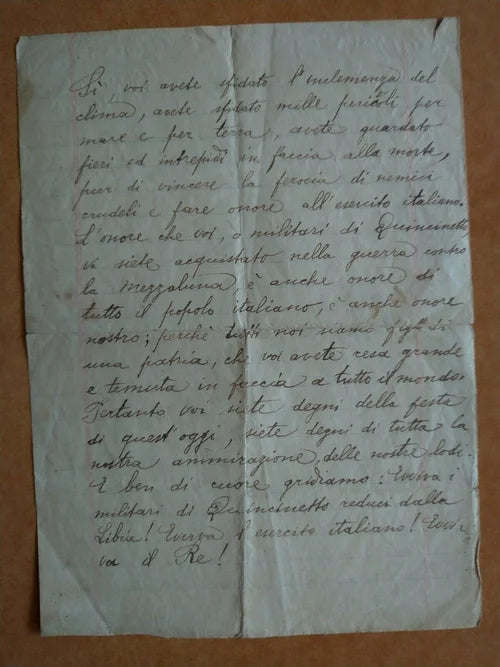 Sì, voi avete sfidato l'inclemenza del
clima, avete sfidato mille pericoli per
mare e per terra, avete guardato
fieri ed intrepidi in faccia alla morte,
pur di vincere la ferocia di nemici
crudeli e fare onore all'esercito italiano.
L'onore che voi, o militari di Quincinetto
vi siete acquistato nella guerra contro
la Mezzaluna, è anche onore di
tutto il popolo italiano, è anche onore
nostro; perchè tutti noi siamo figli di
una patria, che voi avete resa grande
e temuta in faccia a tutto il mondo.
Pertanto voi siete degni della festa
di quest'oggi, siete degni di tutta la
nostra ammirazione, delle nostre lodi.
E ben di cuore gridiamo: Evviva i
militari di Quincinetto reduci dalla
Libia! Evviva l'esercito italiano! Evvi-
va il Re!